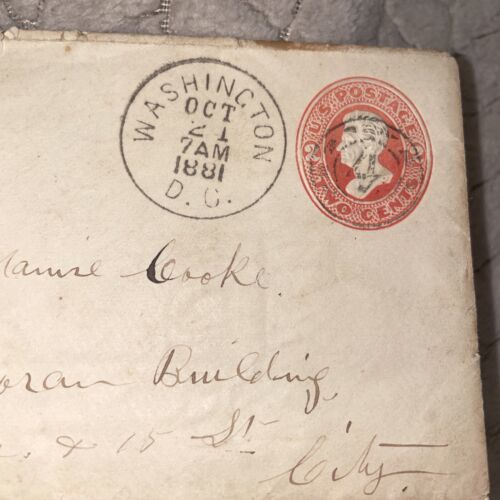 WASHINGTON
OCT
21
7AM
1881
D. C.
U.S. POSTAGE
2 2
TWO CENTS
Cooke
Building
& 15 St
City.